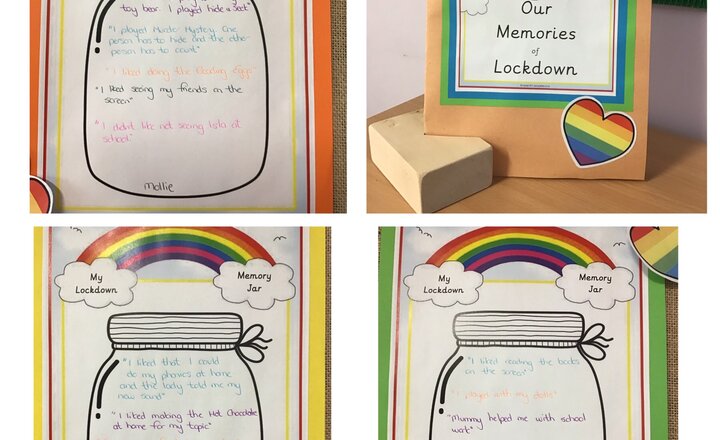 toy bear. I played hide & seek"
"I played Murder Mystery. One
person has to hide and the other
person has to count"
"I liked doing the Reading Eggs"
"I liked seeing my friends on the
screen"
"I didn't like not seeing Isla at
school"
Mollie
Our
Memories
of
Lockdown
My
Lockdown
Memory
Jar
"I liked that I could
do my phonics at home
and the lady told me my
new sound"
"I liked making the Hot Chocolate
at home for my topic"
My
Lockdown
Memory
Jar
"I liked reading the books
on the screen"
"I played with my dolls"
"Mummy helped me with school
work"